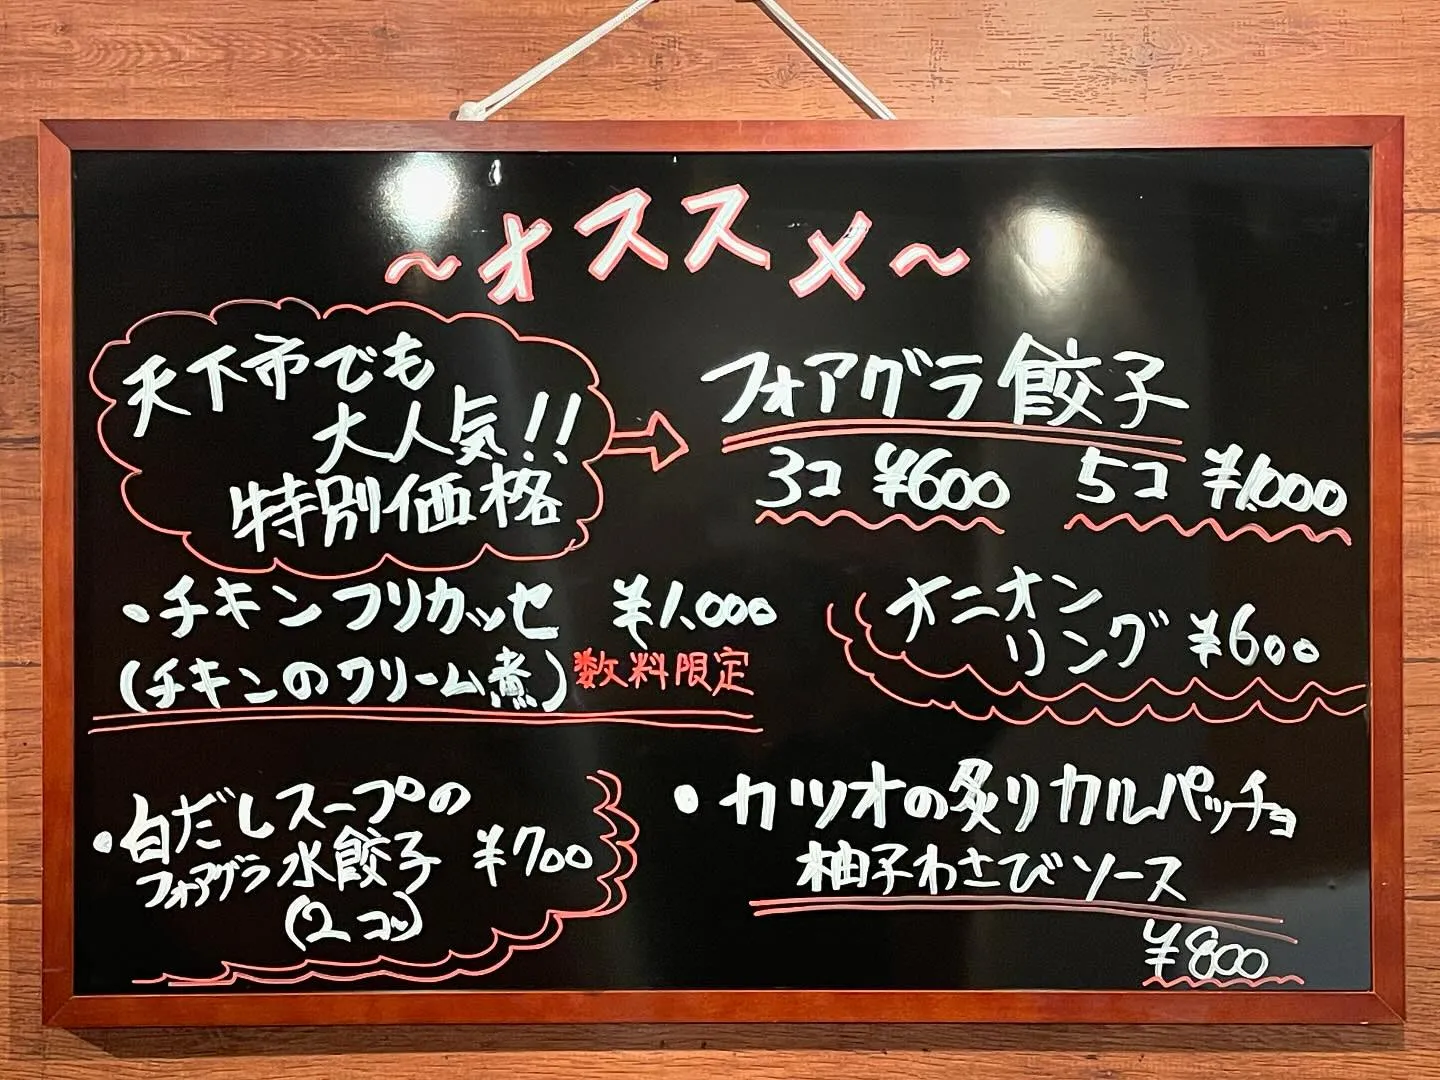 ～オススメ～
天下市でも
大人気!!
特別価格
フォアグラ餃子
3コ ¥600 5コ ¥1,000
・チキンフリカッセ ¥1,000
(チキンのクリーム煮) 数料限定
オニオン
リング ¥600
・白だしスープの
フォアグラ水餃子 ¥700
(2コ)
・カツオの炙りカルパッチョ
柚子わさびソース
¥800